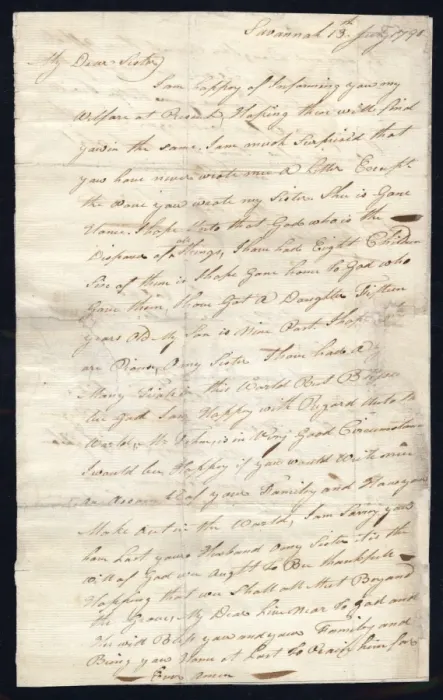 Savannah 13th July 1791
My Dear Sister
I am happy of Informing you my
Welfare at Present, Hopping these will find
you in the same. I am much Surprised that
you have never wrote me a letter Except
the one you wrote my Sister She is Gone
Home. I hope Unto that God who is the
Disposer of all things, I have had Eight Children
Six of them is I hope Gone home to God who
Gave them I have Got a Daughter Fifteen
years Old My Son is Nine Past I hope
are Pious, O my Sister I have had a
Many Trials in this World But Blessed
be God I am Happy with Regard Unto the
World, Mr is in Very Good Circumstances
I would be Happy if you would Write me
an Account of your Family and How you
Make out in the World, I am Sorry you
have Lost your Husband O my Sister it is the
will of God we Aught to Be thankfull
Hopping that we Shall all Meet Beyond
the Grave, My Dear live Near to God and
He will Bless you and your Family and
Bring you Home at Last To Praise him for
Ever Amen